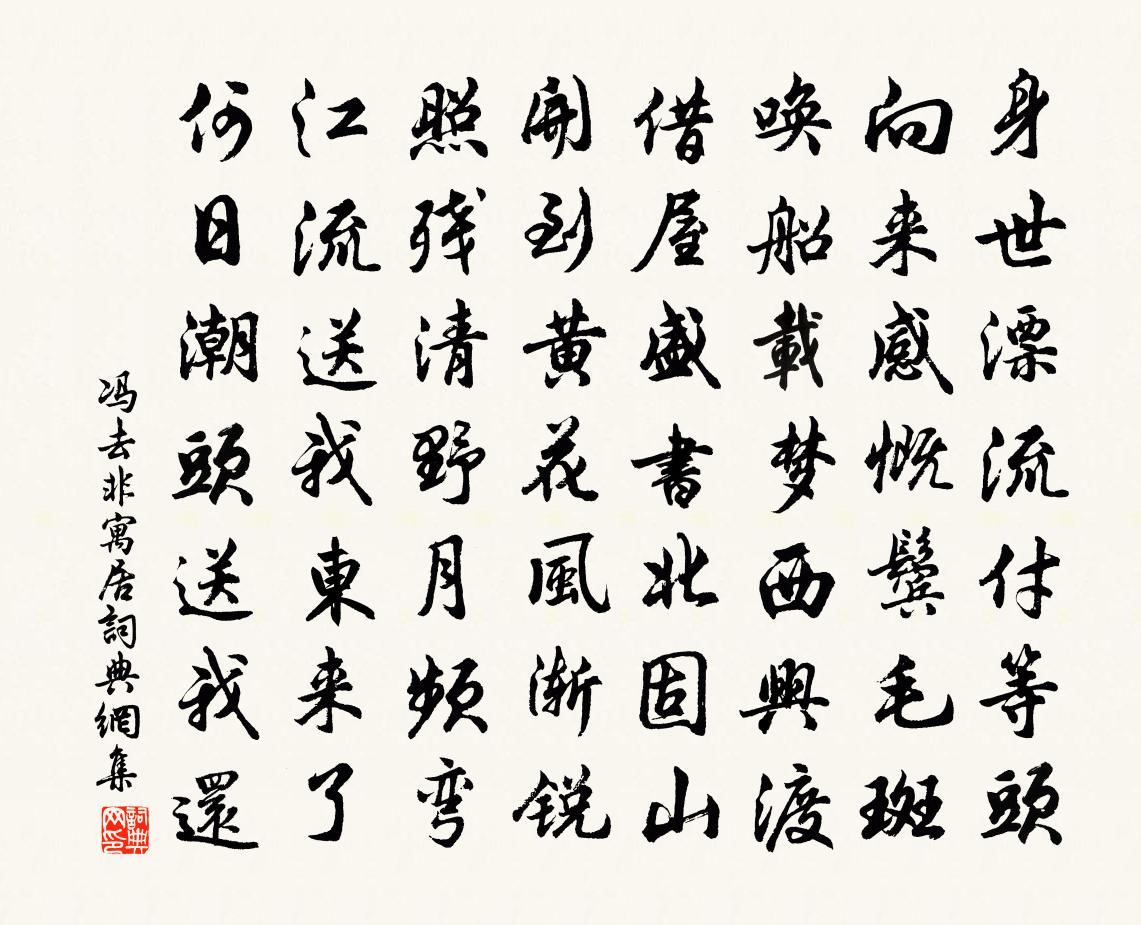 身世漂流付等頭
向来感慨鬓毛斑
唤船載梦西興渡
借屋盛書北固山
開到黄花風渐锐
照残清野月频弯
江流送我東来了
何日潮頭送我還
冯去非寓居詞典網集
詞典网印